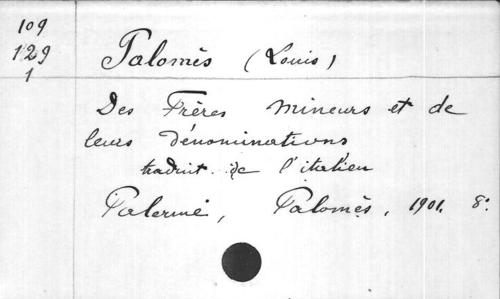 109
129
1
Palomès (Louis)
Des Frères Mineurs et de
leurs dénominations
traduit de l'italien
Palerme, Palomès, 1901. 8º